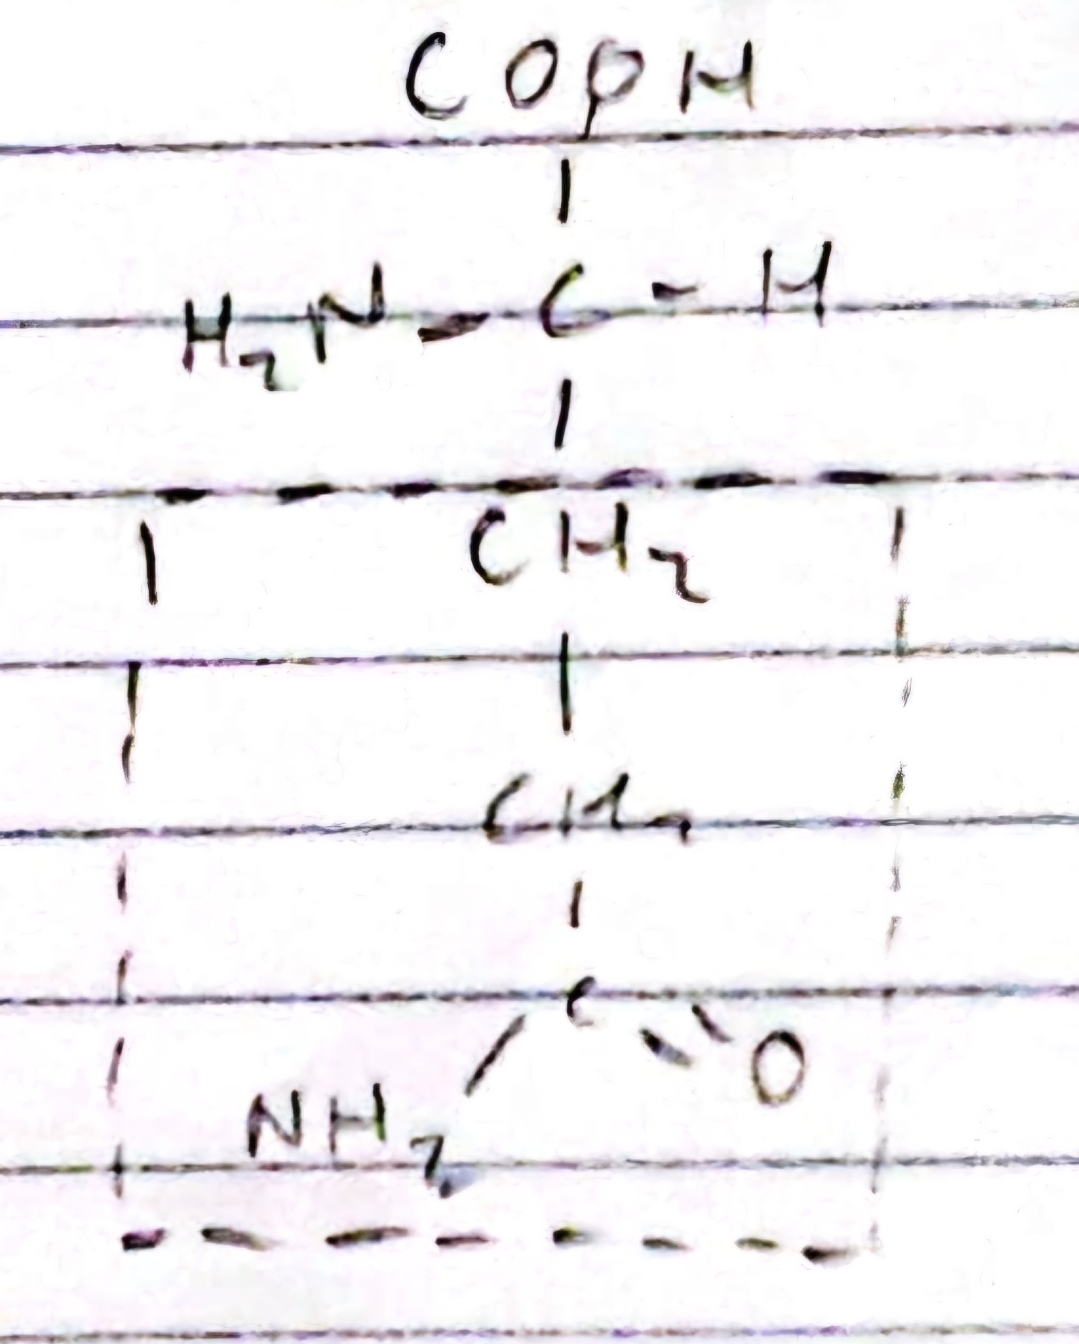 COOH
H₂N - C - H
CH₂
CH₂
C
NH₂ O